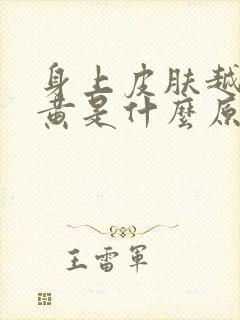 身上皮肤越
黄是什麼原
王雷軍